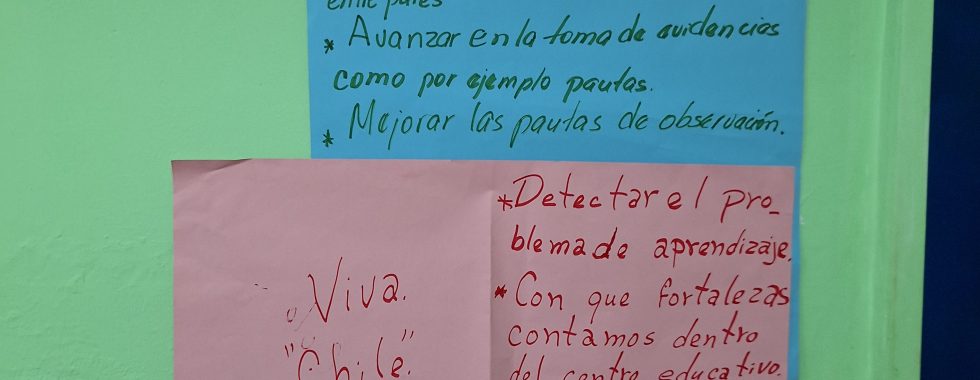 entre pares
* Avanzar en la toma de evidencias
como por ejemplo pautas.
* Mejorar las pautas de observación.
* Detectar el pro-
blema de aprendizaje.
* Con que fortalezas
contamos dentro
del centro educativo.
Viva.
"Chile".